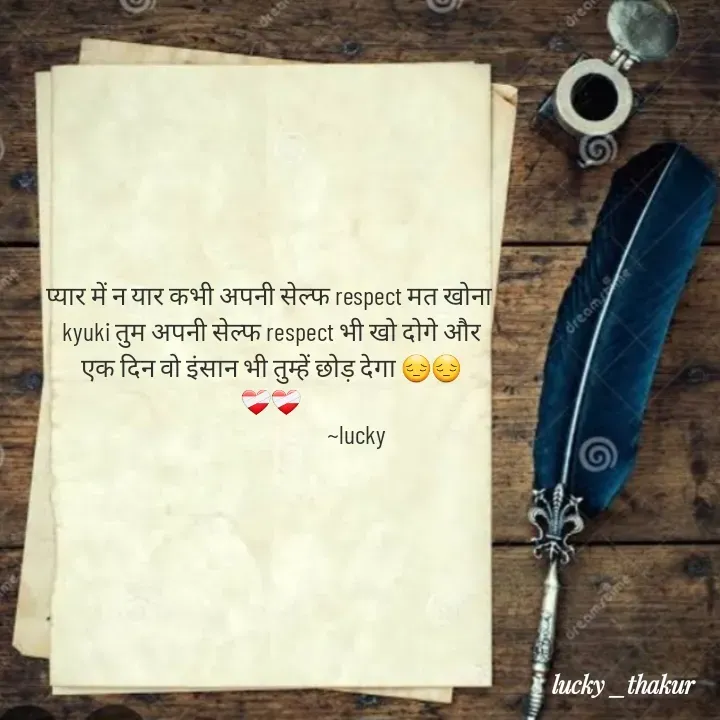 प्यार में न यार कभी अपनी सेल्फ respect मत खोना
kyuki तुम अपनी सेल्फ respect भी खो दोगे और
एक दिन वो इंसान भी तुम्हें छोड़ देगा 😔😔
❤️‍🩹❤️‍🩹
~lucky
lucky_thakur